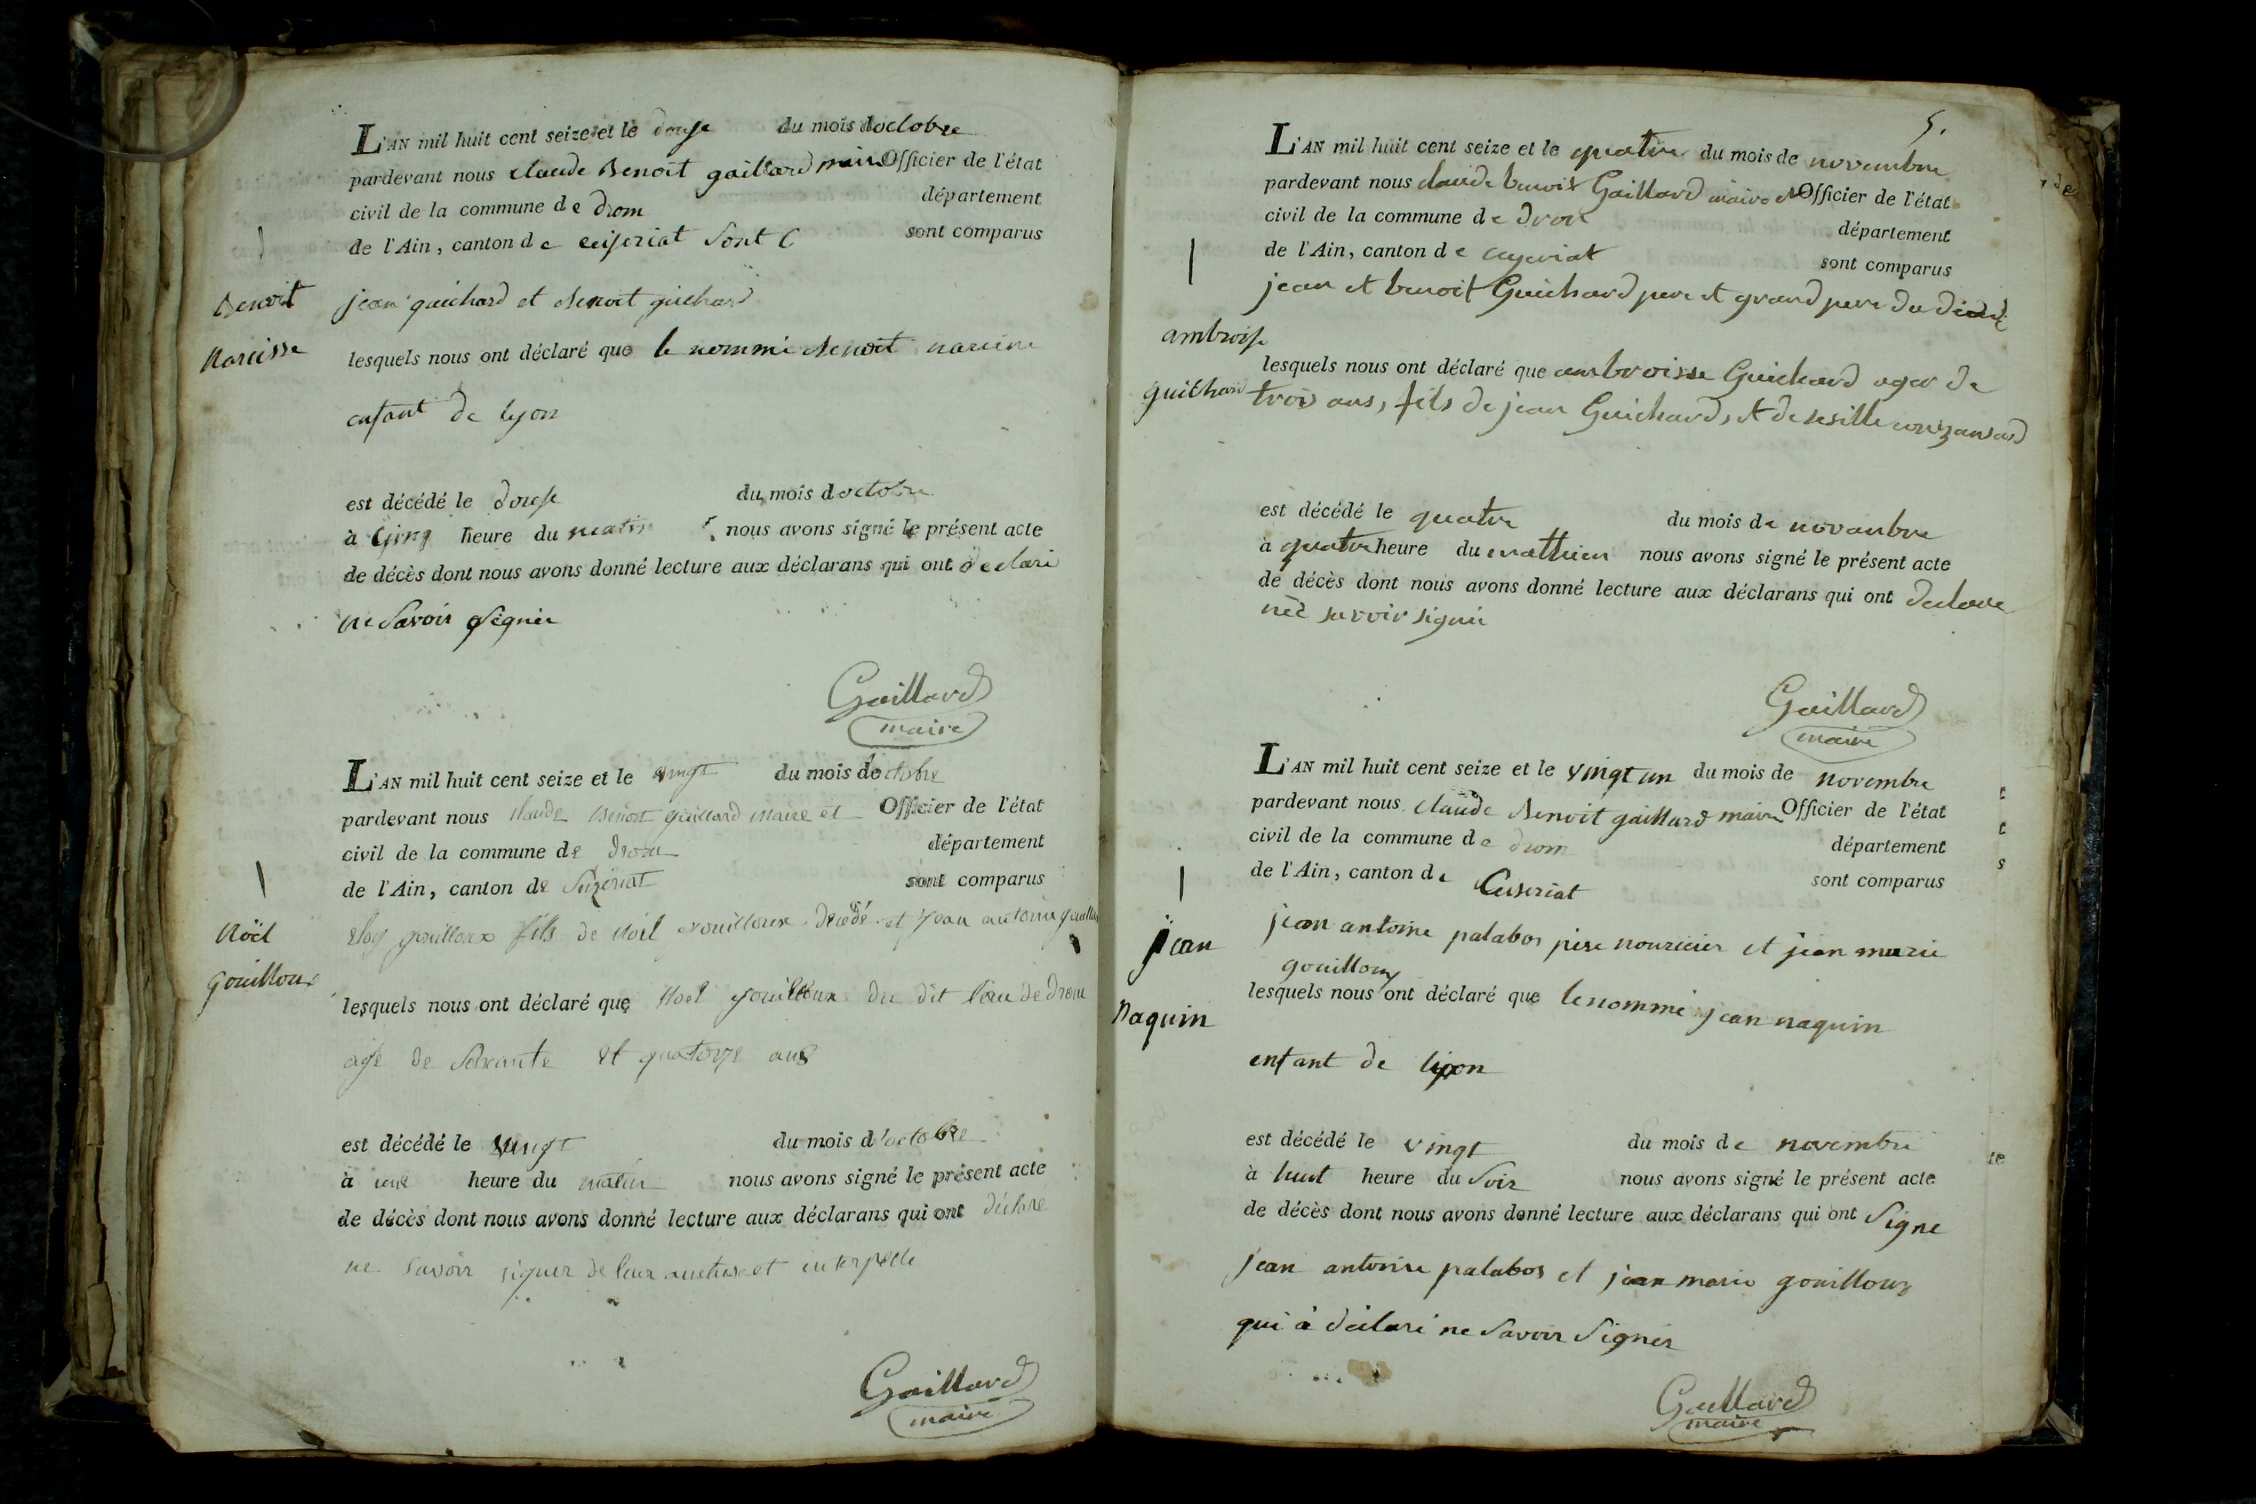 L'AN mil huit cent seize et le douse du mois doctobre
pardevant nous claude Benoit gaillard maire Officier de l'état
civil de la commune de drom département
de l'Ain, canton de ceiseriat sont C sont comparus
Benoit
Narcisse
jean guichard et Benoit guichard
lesquels nous ont déclaré que le nommé Benoit narcisse
enfant de lyon
est décédé le douse du mois doctobre
à cinq heure du matin nous avons signé le présent acte
de décès dont nous avons donné lecture aux déclarans qui ont declaré
ne savoir signer
Gaillard
maire
L'AN mil huit cent seize et le vingt du mois doctobre
pardevant nous claude Benoit gaillard maire et Officier de l'état
civil de la commune de drom département
de l'Ain, canton de Seizériat sont comparus
Noël
gouilloux
eloy gouilloux fils de Noël gouilloux décédé et jean antoine
lesquels nous ont déclaré que Noel gouilloux du dit lieu de drom
agé de soixante et quatorze ans
est décédé le vingt du mois d'octobre
à une heure du matin nous avons signé le présent acte
de décès dont nous avons donné lecture aux déclarans qui ont déclaré
ne savoir signer de leur et interpellé
Gaillard
maire
5.
L'AN mil huit cent seize et le quatre du mois de novembre
pardevant nous claude benoit Gaillard maire et Officier de l'état
civil de la commune de dron département
de l'Ain, canton de ceyseriat sont comparus
jean et benoit Guichard pere et grand pere du
ambroise
guichard
lesquels nous ont déclaré que ambroisse Guichard agee de
trois ans, fils de jean Guichard, et de sesille
est décédé le quatre du mois de novanbre
à quatre heure du mattien nous avons signé le présent acte
de décès dont nous avons donné lecture aux déclarans qui ont declare
née savoir signié
Gaillard
maire
L'AN mil huit cent seize et le vingt un du mois de novembre
pardevant nous claude Benoit gaillard maire Officier de l'état
civil de la commune de drom département
de l'Ain, canton de Ceiseriat sont comparus
jean
naquin
jean antoine palabos père nouricier et jean marie
gouilloux
lesquels nous ont déclaré que le nommé jean naquin
enfant de lyon
est décédé le vingt du mois de novembre
à huit heure du soir nous avons signé le présent acte
de décès dont nous avons donné lecture aux déclarans qui ont Signé
jean antoine palabos et jean marie gouilloux
qui à déclaré ne savoir signer
Gaillard
maire